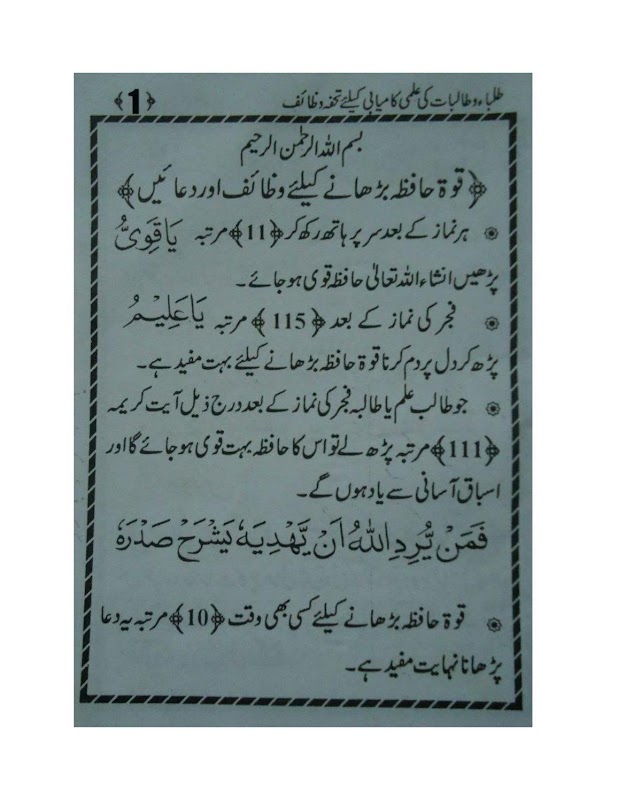 طلباء و طالبات کی علمی کامیابی کیلئے تحفہ وظائف ﴿1﴾
بسم اللہ الرحمٰن الرحیم
﴿قوۃ حافظہ بڑھانے کیلئے وظائف اور دعائیں﴾
ہر نماز کے بعد سر پر ہاتھ رکھ کر ﴿11﴾ مرتبہ يَا قَوِيُّ
پڑھیں انشاء اللہ تعالیٰ حافظہ قوی ہو جائے۔
فجر کی نماز کے بعد ﴿115﴾ مرتبہ يَا عَلِيْمُ
پڑھ کر دل پر دم کرنا قوۃ حافظہ بڑھانے کیلئے بہت مفید ہے۔
جو طالب علم یا طالبہ فجر کی نماز کے بعد درج ذیل آیت کریمہ
﴿111﴾ مرتبہ پڑھ لے تو اس کا حافظہ بہت قوی ہو جائے گا اور
اسباق آسانی سے یاد ہوں گے۔
فَمَنْ يُّرِدِ اللّٰهُ اَنْ يَّهْدِيَهٗ يَشْرَحْ صَدْرَهٗ
قوۃ حافظہ بڑھانے کیلئے کسی بھی وقت ﴿10﴾ مرتبہ یہ دعا
پڑھانا نہایت مفید ہے۔